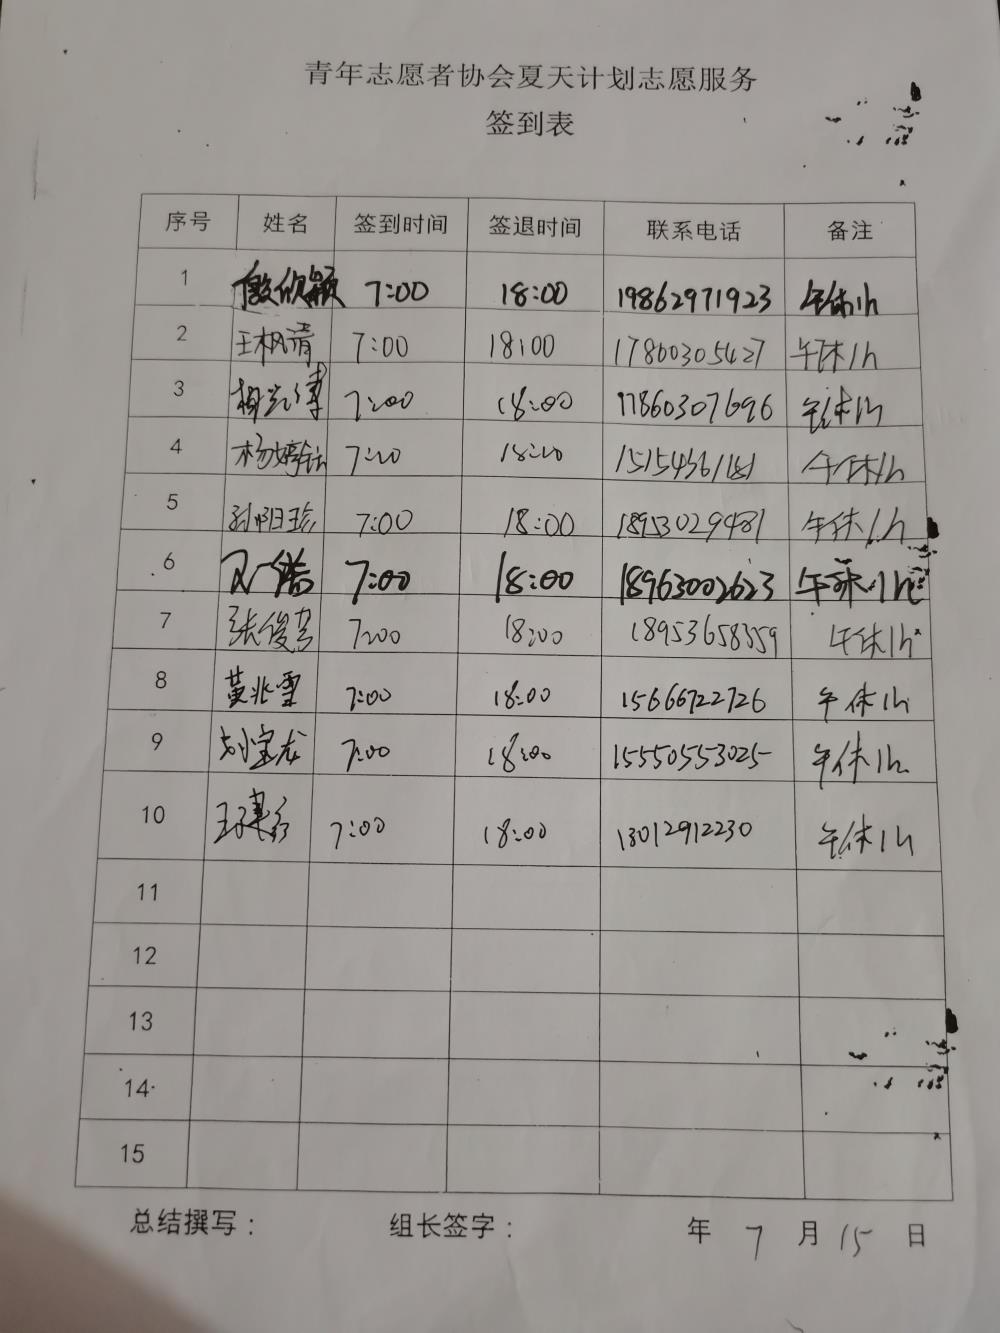 青年志愿者协会夏天计划志愿服务
签到表
序号 姓名 签到时间 签退时间 联系电话 备注
1 欣颖 7:00 18:00 19862971923 午休1h
2 王枫清 7:00 18:00 17860305427 午休1h
3 7:00 18:00 17860307696 午休1h
4 杨婷 7:00 18:00 15154361181 午休1h
5 孙明珍 7:00 18:00 18953029481 午休1h
6 7:00 18:00 18963002623 午休1h
7 张俊 7:00 18:00 18953658359 午休1h
8 黄兆雪 7:00 18:00 15666722726 午休1h
9 刘宝龙 7:00 18:00 15550553025 午休1h
10 王 7:00 18:00 13012912230 午休1h
11
12
13
14
15
总结撰写: 组长签字: 年 7 月 15 日